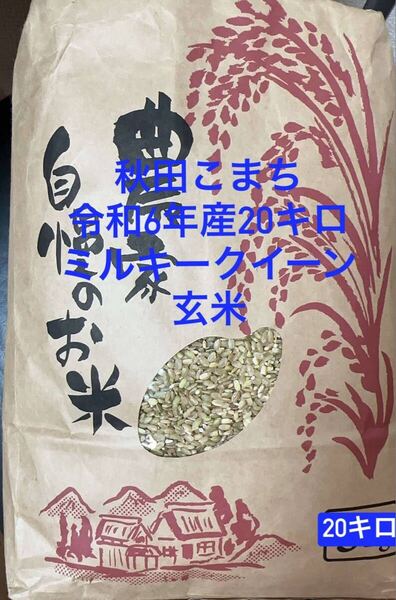 農家
自慢のお米
秋田こまち
令和6年産20キロ
ミルキークイーン
玄米
20キロ